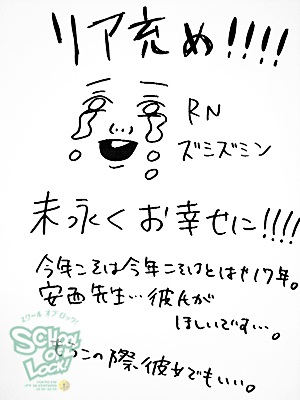 リア充め!!!!
RN
ズシズミン
末っ永くお幸せに!!!!
今年こそは今年こそはとはや17年。
安西先生…彼氏が
ほしいです…。
もうこの際、彼女でもいい。
スクール オブ ロック!
SCHOOL
OF
LOCK!